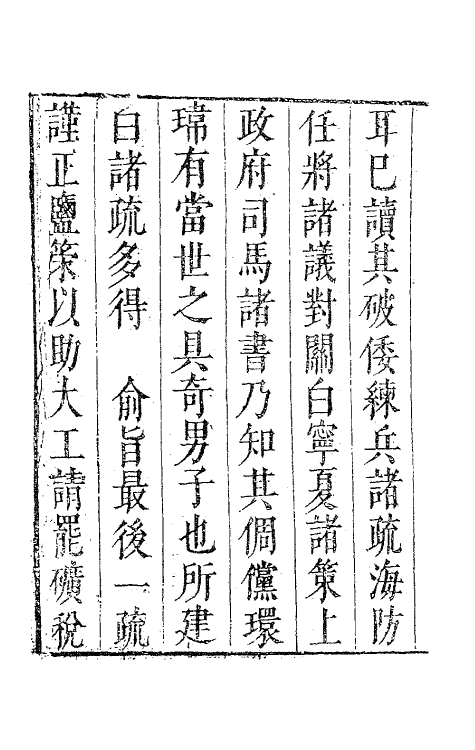 耳已讀其破倭練兵諸疏海防
任將諸議對關白寧夏諸策上
政府司馬諸書乃知其倜儻環
瑋有當世之具奇男子也所建
白諸疏多得　俞旨最後一疏
謹正鹽策以助大工請罷礦稅